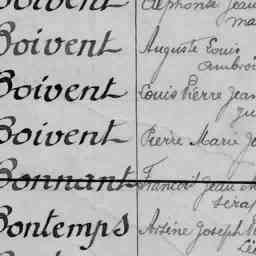 Boivent Alphonse Jean
Boivent Auguste Louis
Boivent Louis Pierre Jean
Boivent Pierre Marie
Bonnant Francis Jean
Bontemps Arsène Joseph